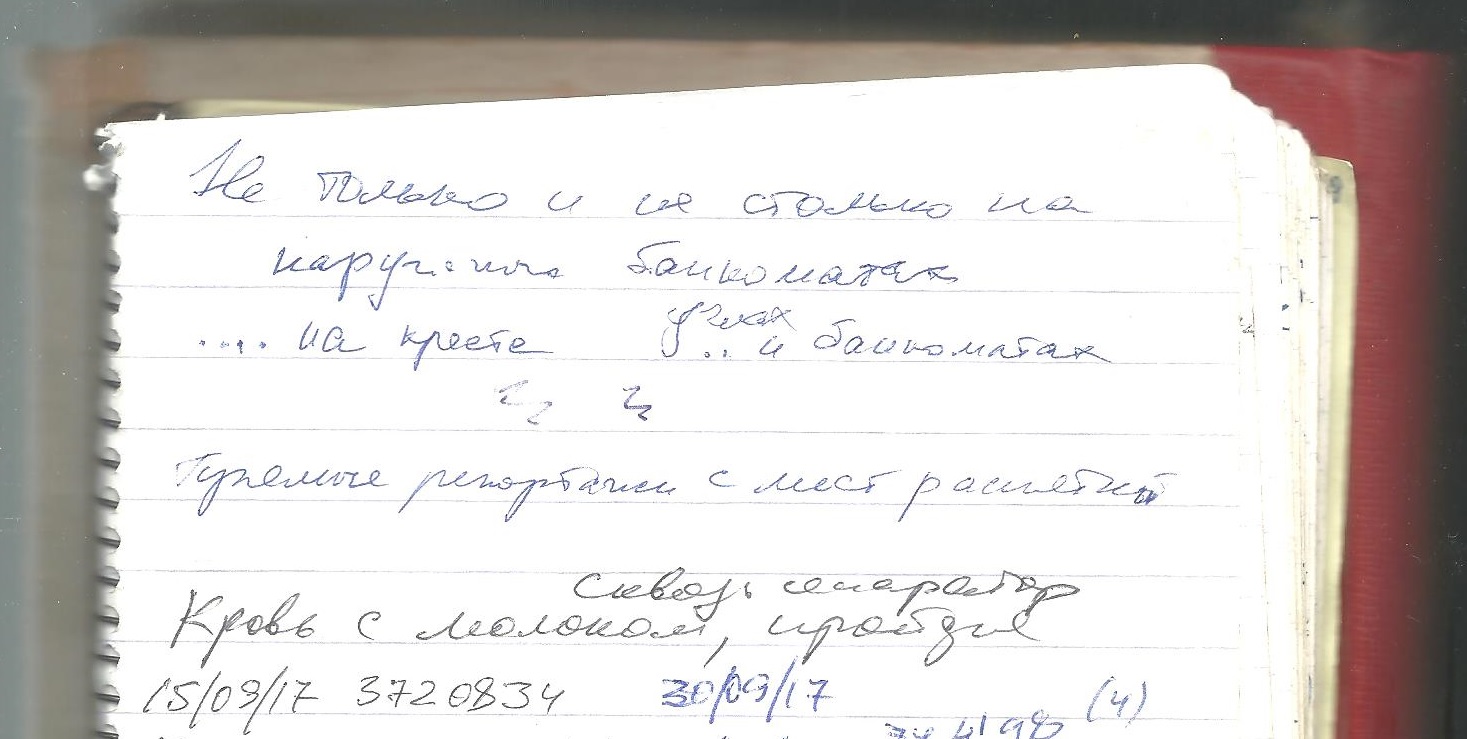 Не только и не столько на
банкоматах
.... на кресте .. и банкоматах
репортажи с мест
сквозь сепаратор
Кровь с молоком, пройдя
15/09/17 3720834 30/09/17 (4)